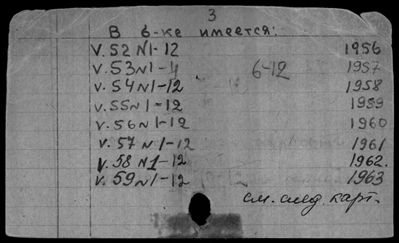 3
В б-ке имеется:
V. 52 N1-12 1956
V. 53 N1-4 6-12 1957
V. 54 N1-12 1958
V. 55 N1-12 1959
V. 56 N1-12 1960
V. 57 N1-12 1961
V. 58 N1-12 1962.
V. 59 N1-12 1963
см. след. карт.